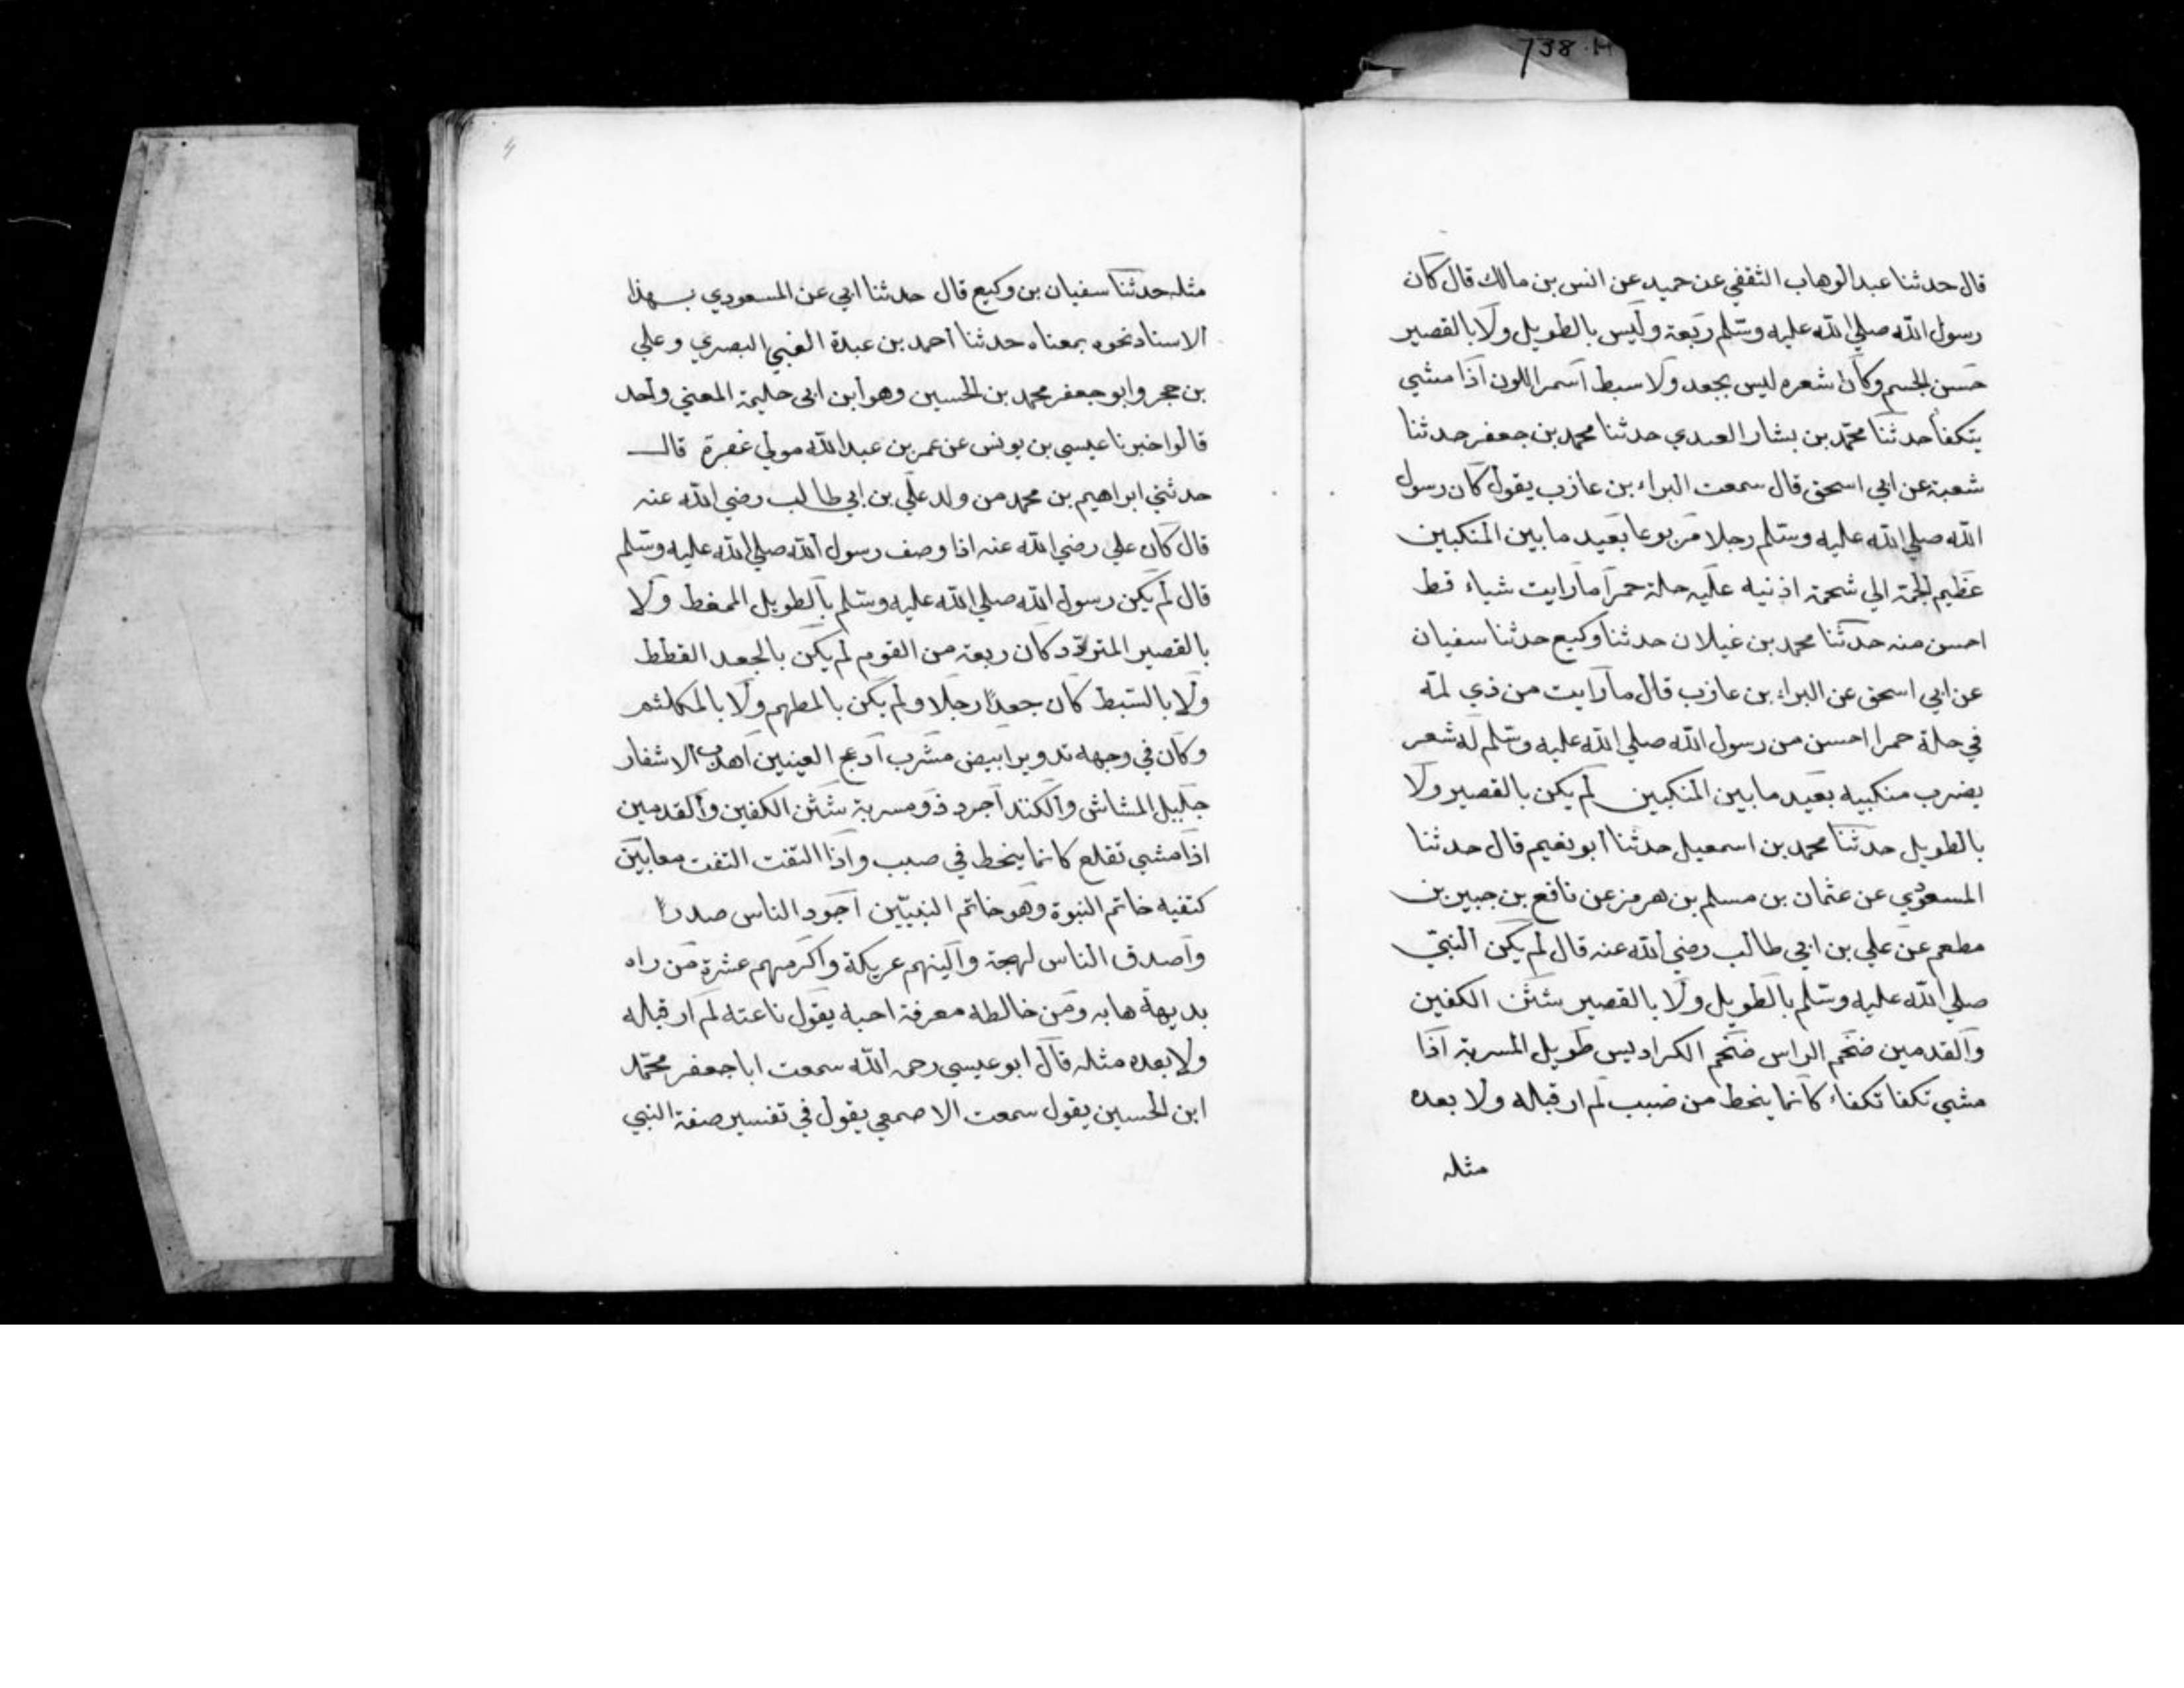 738.H
قال حدثنا عبد الوهاب الثقفي عن حميد عن انس بن مالك قال كان
رسول الله صلي الله عليه وسلم ربعة وليس بالطويل ولا بالقصير
حسن الجسم وكان شعره ليس بجعد ولا سبط أسمر اللون اذا مشي
يتكفأ حدثنا محمد بن بشار العبدي حدثنا محمد بن جعفر حدثنا
شعبة عن ابي اسحق قال سمعت البراء بن عازب يقول كان رسول
الله صلي الله عليه وسلم رجلا مربوعا بعيد ما بين المنكبين
عظيم الجمة الي شحمة اذنيه عليه حلة حمرا ما رايت شياء قط
احسن منه حدثنا محمد بن غيلان حدثنا وكيع حدثنا سفيان
عن ابي اسحق عن البراء بن عازب قال ما رايت من ذي لمة
في حلة حمرا احسن من رسول الله صلي الله عليه وسلم له شعر
يضرب منكبيه بعيد ما بين المنكبين لم يكن بالقصير ولا
بالطويل حدثنا محمد بن اسمعيل حدثنا أبو نعيم قال حدثنا
المسعودي عن عثمان بن مسلم بن هرمز عن نافع بن جبير بن
مطعم عن علي بن ابي طالب رضي الله عنه قال لم يكن النبي
صلي الله عليه وسلم بالطويل ولا بالقصير شثن الكفين
والقدمين ضخم الراس ضخم الكراديس طويل المسربة اذا
مشي تكفا تكفاء كانما ينحط من صبب لم ار قبله ولا بعده
مثله
مثله حدثنا سفيان بن وكيع قال حدثنا ابي عن المسعودي بهذا
الاسناد نحوه بمعناه حدثنا أحمد بن عبدة الضبي البصري وعلي
بن حجر وابو جعفر محمد بن الحسين وهو ابن ابي حليمة المعني واحد
قالوا اخبرنا عيسي بن يونس عن عمر بن عبد الله مولي غفرة قال
حدثني ابراهيم بن محمد من ولد علي بن ابي طالب رضي الله عنه
قال كان علي رضي الله عنه اذا وصف رسول الله صلي الله عليه وسلم
قال لم يكن رسول الله صلي الله عليه وسلم بالطويل الممغط ولا
بالقصير المتردد كان ربعة من القوم لم يكن بالجعد القطط
ولا بالسبط كان جعدا رجلا ولم يكن بالمطهم ولا بالمكلثم
وكان في وجهه تدوير ابيض مشرب أدعج العينين أهدب الاشفار
جليل المشاش والكتد أجرد ذو مسربة شثن الكفين والقدمين
اذا مشي تقلع كانما ينحط في صبب واذا التفت التفت معا بين
كتفيه خاتم النبوة وهو خاتم النبيين أجود الناس صدرا
وأصدق الناس لهجة وألينهم عريكة وأكرمهم عشرة من راه
بديهة هابه ومن خالطه معرفة احبه يقول ناعته لم ار قبله
ولا بعده مثله قال ابو عيسي رحمه الله سمعت ابا جعفر محمد
ابن الحسين يقول سمعت الاصمعي يقول في تفسير صفة النبي